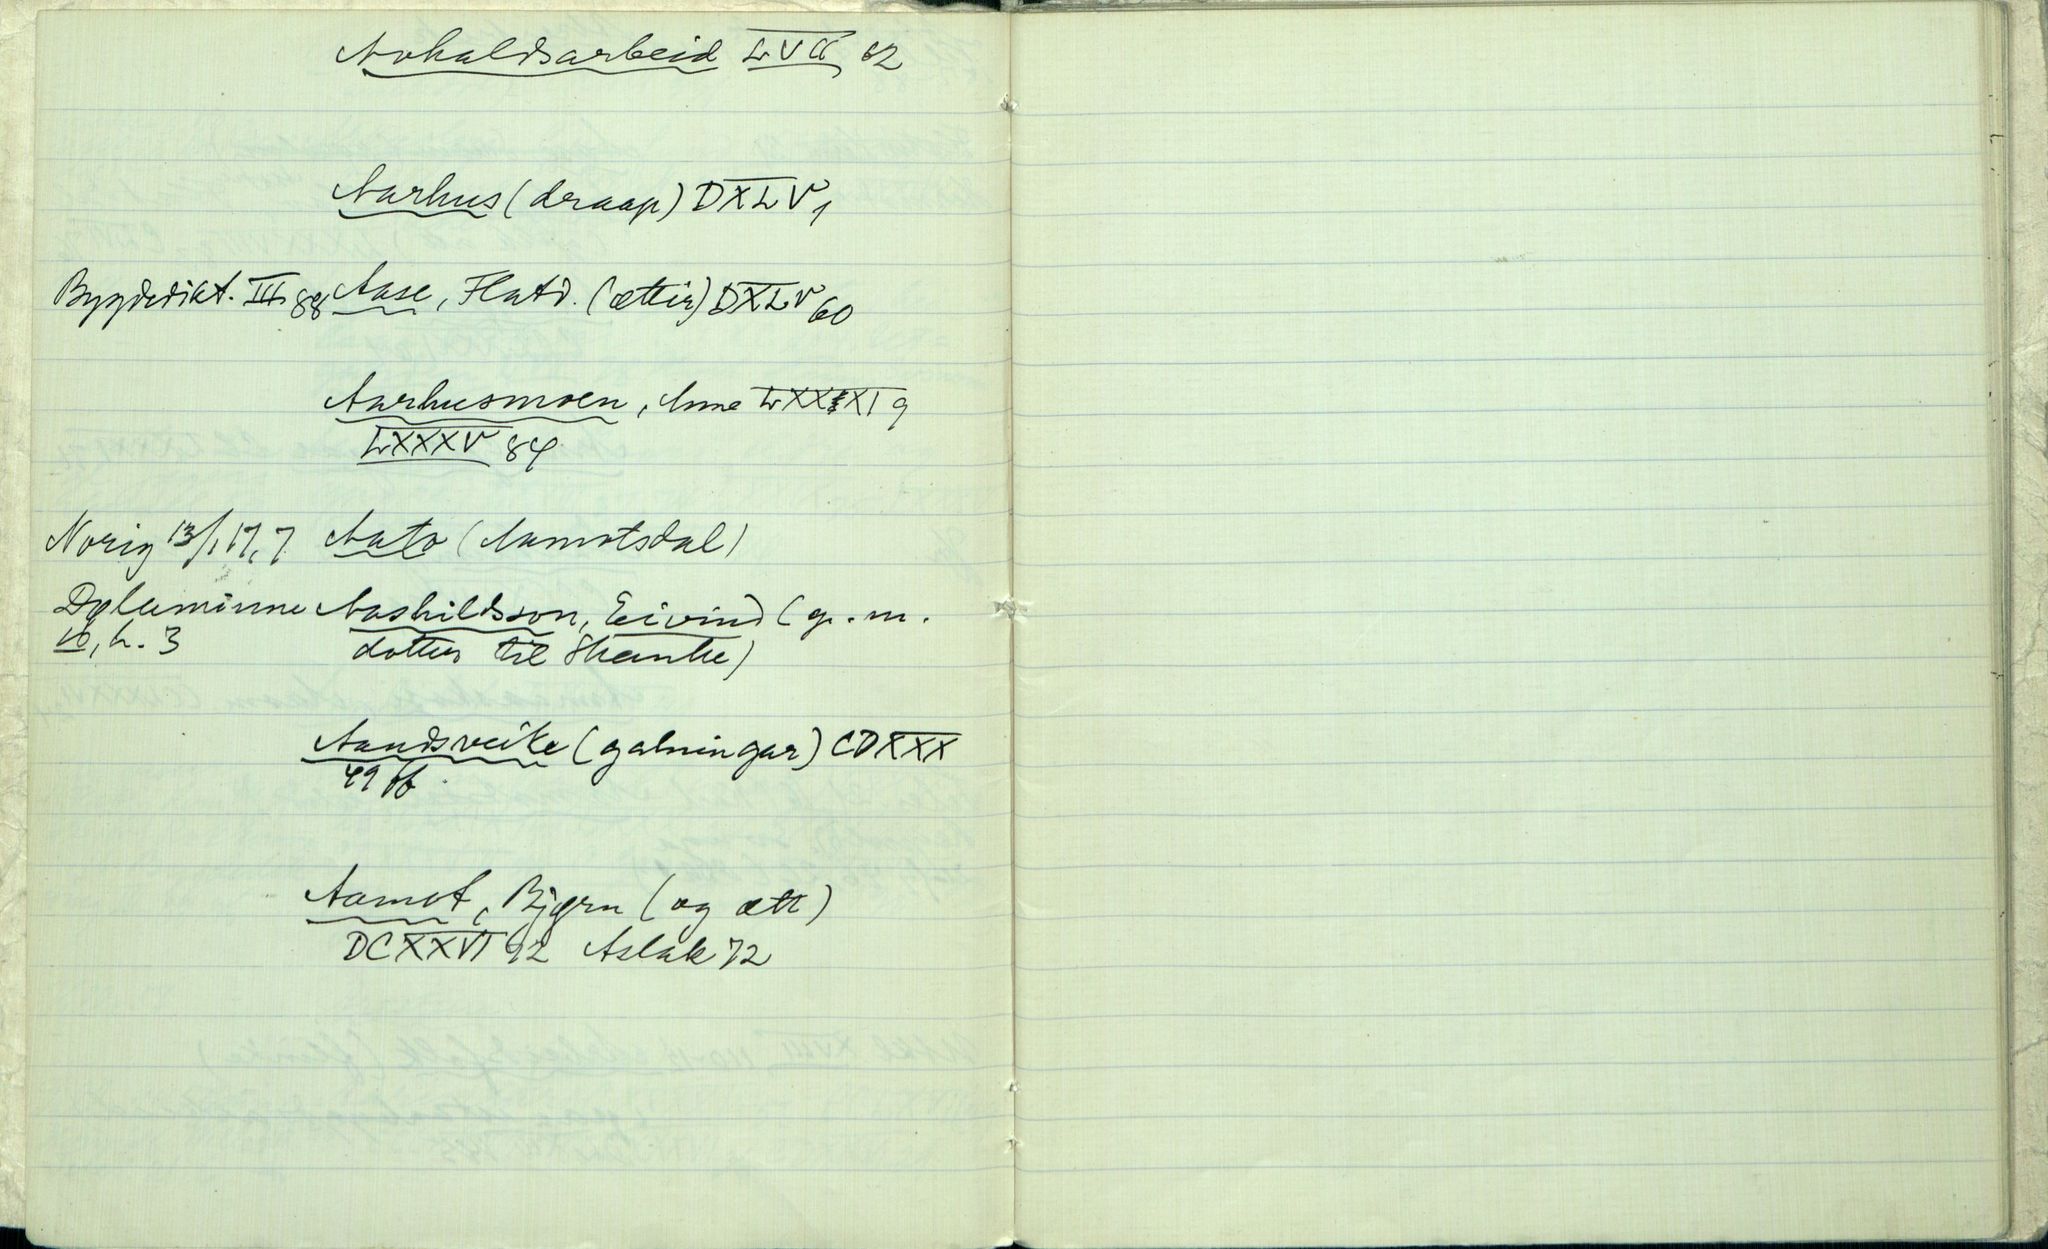 Aahaldsarbeid LVII 62
Aarhus (draap) DXLV 1
Bygdedikt. III 88 Aase, Flatd. (ættir) DXLV 60
Aarhusmoen, Anne LXXXXI 9
LXXXV 84
Norig 13/1 17, 7 Aato (Aamotsdal)
Dølaminne Aashildsson, Eivind (g. m.
16, h. 3 dotter til Skanke)
Aandsveike (galningar) CDXXX
49 ff.
Aamot, Bjørn (og ætt)
DCXXVI 92 Aslak 72